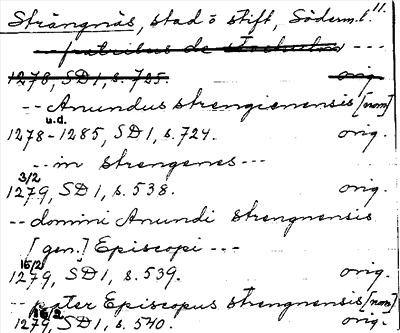 Strängnäs, stad o stift, Söderm. l. 11.
-- fratribus de stochholm ---
1278, SD 1, s. 725. orig.
-- Anundus strengienensis [nom]
u.d.
1278-1285, SD 1, s. 724. orig.
-- in strengenes ---
3/2
1279, SD 1, s. 538. orig.
-- domini Anundi strengnensis
[gen.] Episcopi ---
16/2
1279, SD 1, s. 539. orig.
-- pater Episcopus strengnensis [nom]
16/2
1279, SD 1, s. 540. orig.